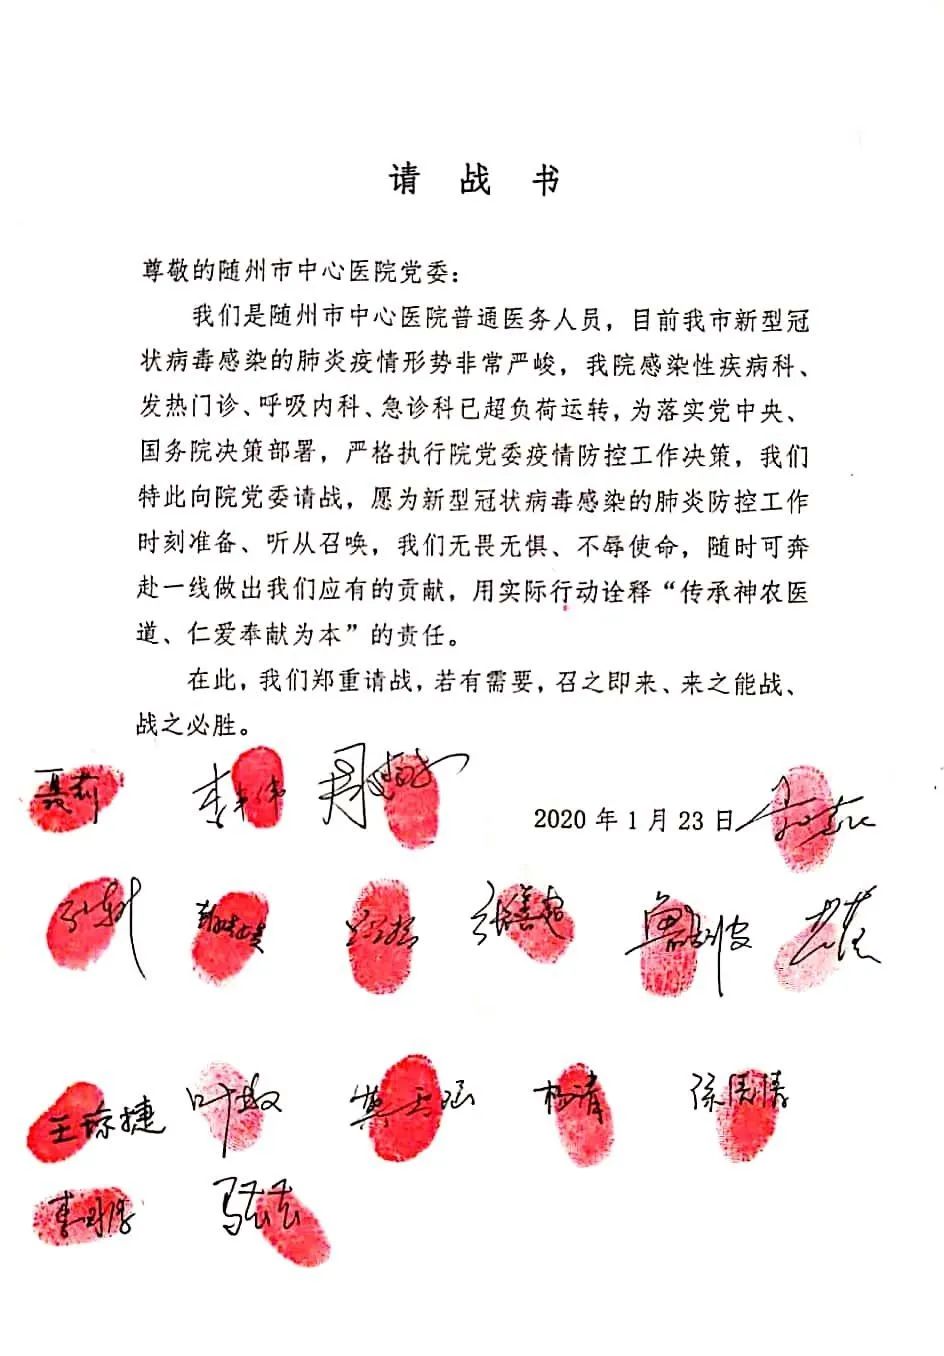 请战书
尊敬的随州市中心医院党委：
我们是随州市中心医院普通医务人员，目前我市新型冠
状病毒感染的肺炎疫情形势非常严峻，我院感染性疾病科、
发热门诊、呼吸内科、急诊科已超负荷运转，为落实党中央、
国务院决策部署，严格执行院党委疫情防控工作决策，我们
特此向院党委请战，愿为新型冠状病毒感染的肺炎防控工作
时刻准备、听从召唤，我们无畏无惧、不辱使命，随时可奔
赴一线做出我们应有的贡献，用实际行动诠释“传承神农医
道、仁爱奉献为本”的责任。
在此，我们郑重请战，若有需要，召之即来、来之能战、
战之必胜。
聂莉
2020年1月23日
张善超
王琼捷 叶敏 杨清